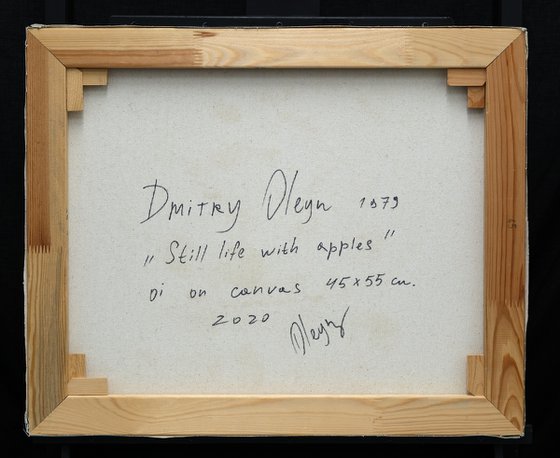 Dmitry Oleyn 1979
„Still life with apples"
oi on canvas 45x55 cm.
2020
Oleyn